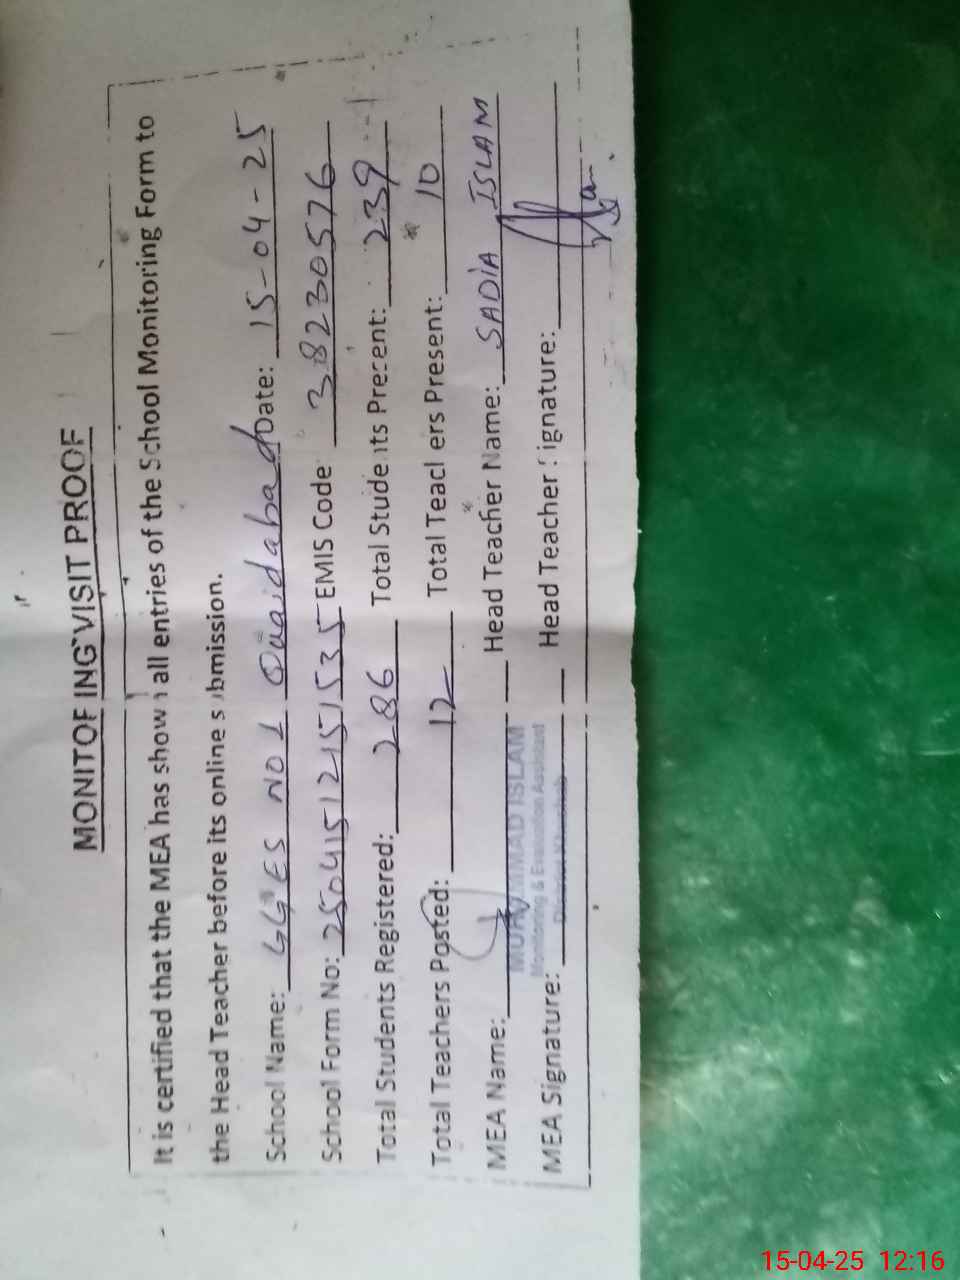 MONITORING VISIT PROOF
It is certified that the MEA has shown all entries of the School Monitoring Form to
the Head Teacher before its online submission.
School Name: GGES NO 1 Quaidabad Date: 15-04-25
School Form No: 25041512151535 EMIS Code 38230576
Total Students Registered: 286 Total Students Present: 239
Total Teachers Posted: 12 Total Teachers Present: 10
MEA Name: MUHAMMAD ISLAM Head Teacher Name: SADIA ISLAM
Monitoring & Evaluation Assistant
MEA Signature: District Khushab Head Teacher Signature:
15-04-25 12:16